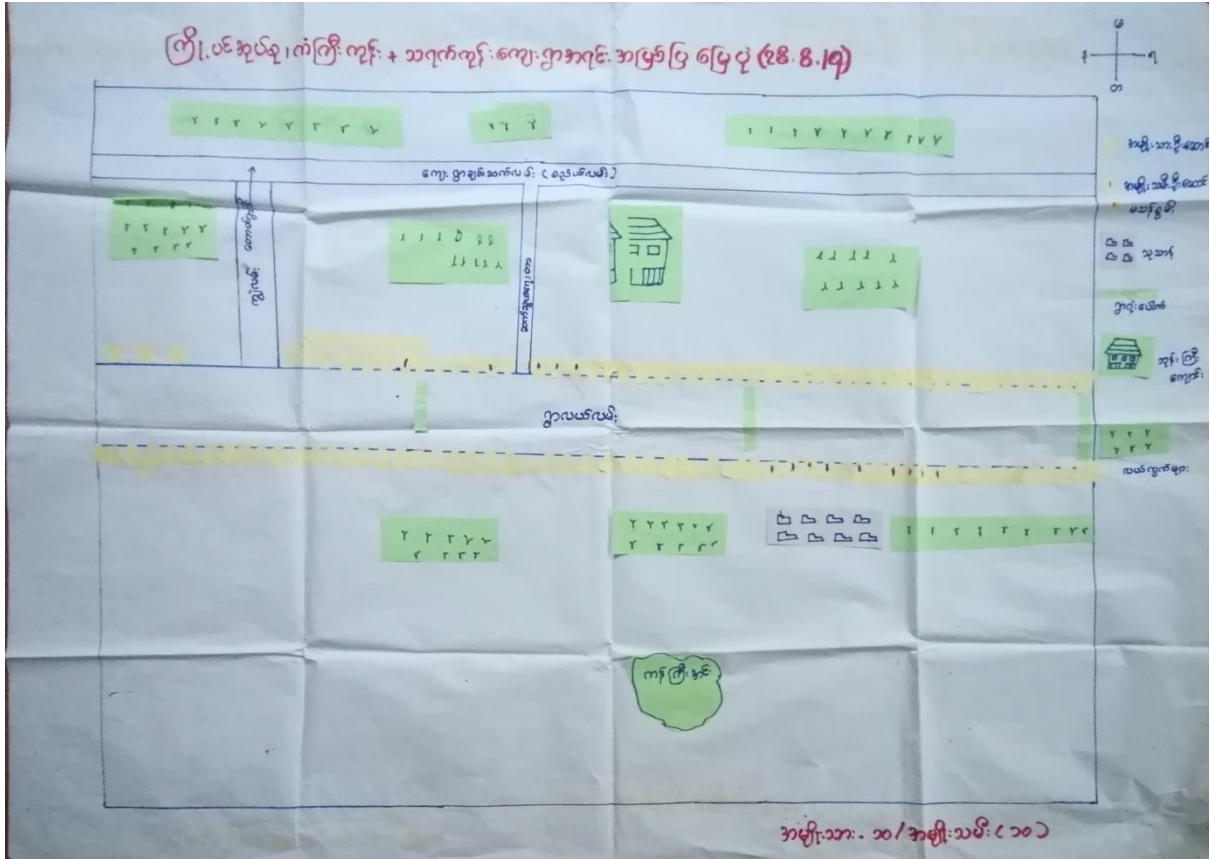 ကြို့ပင်အုပ်စု၊ ကံကြီးကုန်း + သရက်ကုန်းကျေးရွာအရင်းအမြစ်ပြ မြေပုံ (28.8.19)
မ
န
ရ
တ
ကျေးရွာချင်းဆက်လမ်း (စည်ပယ်လမ်း)
ရွာလယ်လမ်း
ကန်ကြီးအင်း
အမျိုးသားဦးဆောင်
အမျိုးသမီးဦးဆောင်
မသန်စွမ်း
သုသာန်
ဘုန်းကြီး
ကျောင်း
လယ်ကွက်များ
အမျိုးသား - ၁၀ / အမျိုးသမီး (၁၀)